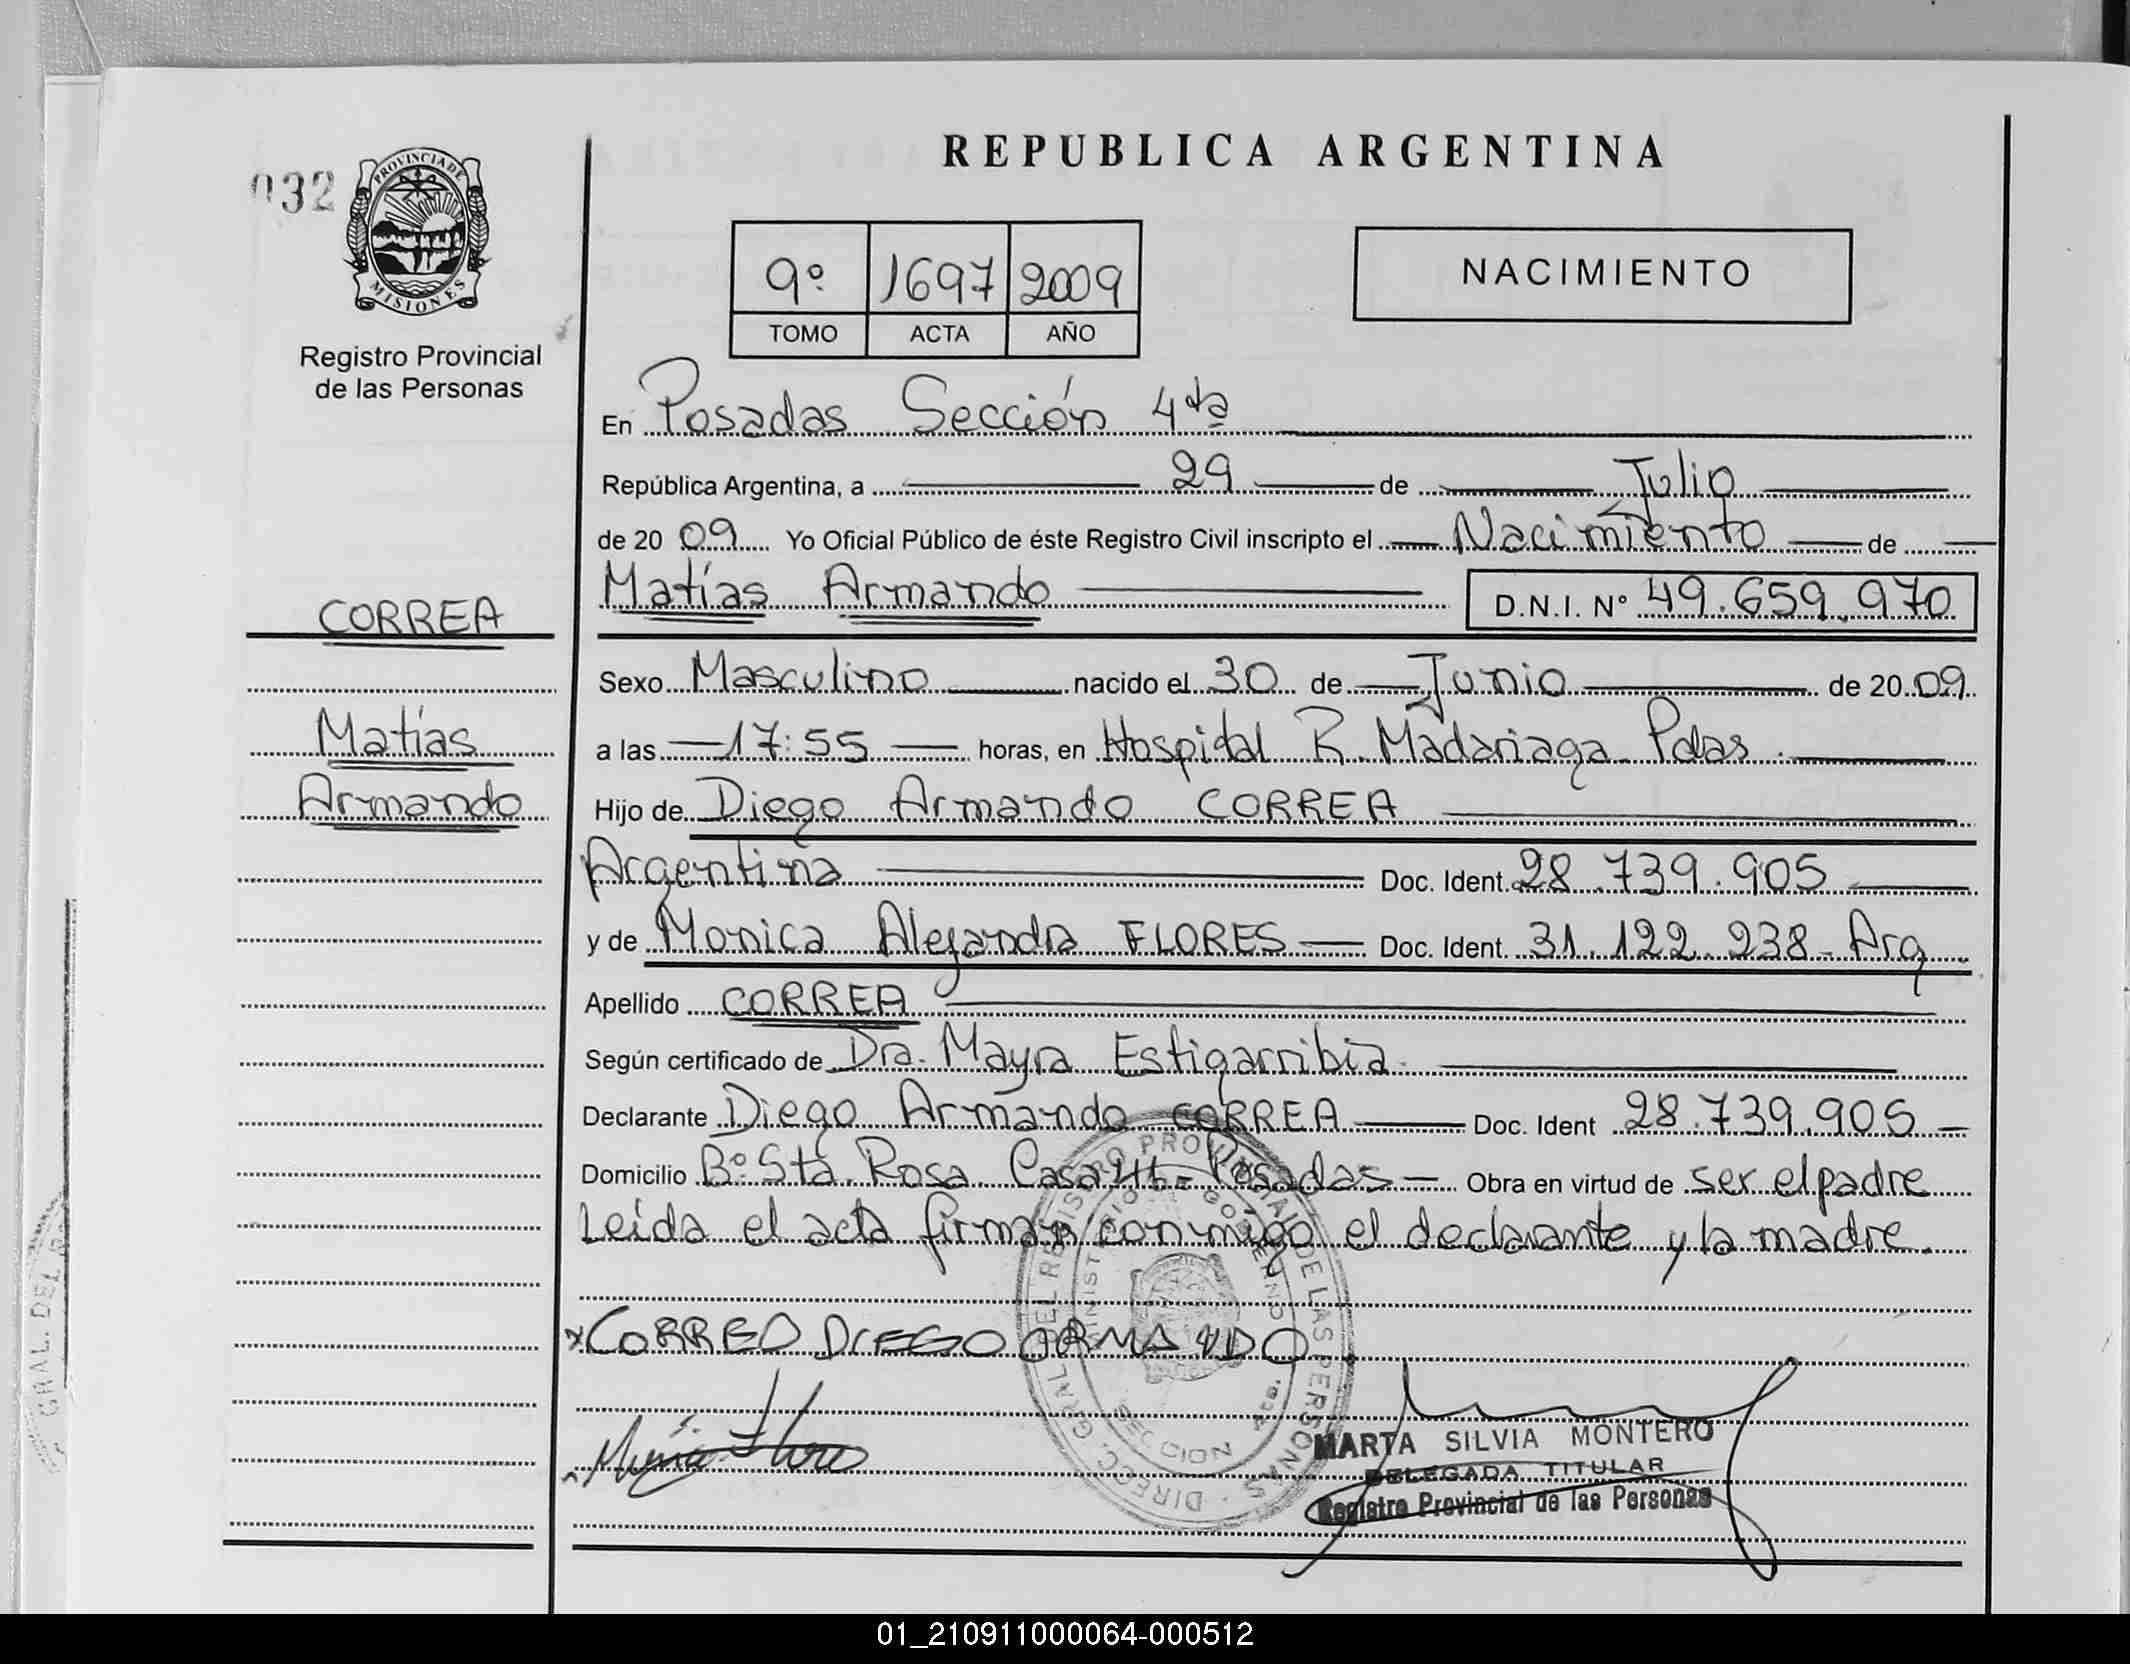 REPUBLICA ARGENTINA
032
PROVINCIA DE
MISIONES
Registro Provincial
de las Personas
9º 1697 2009
TOMO ACTA AÑO
NACIMIENTO
En Posadas Sección 4ta
República Argentina, a 29 de Julio
de 20 09 Yo Oficial Público de éste Registro Civil inscripto el Nacimiento de
Matías Armando D.N.I. Nº 49.659.970
CORREA
Matías
Armando
Sexo Masculino nacido el 30 de Junio de 20 09
a las 17:55 horas, en Hospital R. Madariaga Pdas.
Hijo de Diego Armando CORREA
Argentina Doc. Ident. 28.739.905
y de Monica Alejandra FLORES Doc. Ident. 31.122.238 - Arg
Apellido CORREA
Según certificado de Dra. Mayra Estigarribia.
Declarante Diego Armando CORREA Doc. Ident 28.739.905
Domicilio Bº Sta. Rosa Casa Posadas Obra en virtud de ser el padre
Leída el acta firman conmigo el declarante y la madre.
DIRECC. GRAL. DEL REGISTRO PROVINCIAL DE LAS PERSONAS
MINISTERIO GOBIERNO
SECCION 4ta.
x CORREO DIEGO ORMANDO
MARTA SILVIA MONTERO
DELEGADA TITULAR
Registro Provincial de las Personas
GRAL. DEL
01_210911000064-000512